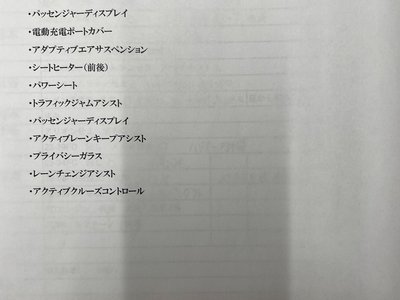 ・パッセンジャーディスプレイ
・電動充電ポートカバー
・アダプティブエアサスペンション
・シートヒーター（前後）
・パワーシート
・トラフィックジャムアシスト
・パッセンジャーディスプレイ
・アクティブレーンキープアシスト
・プライバシーガラス
・レーンチェンジアシスト
・アクティブクルーズコントロール